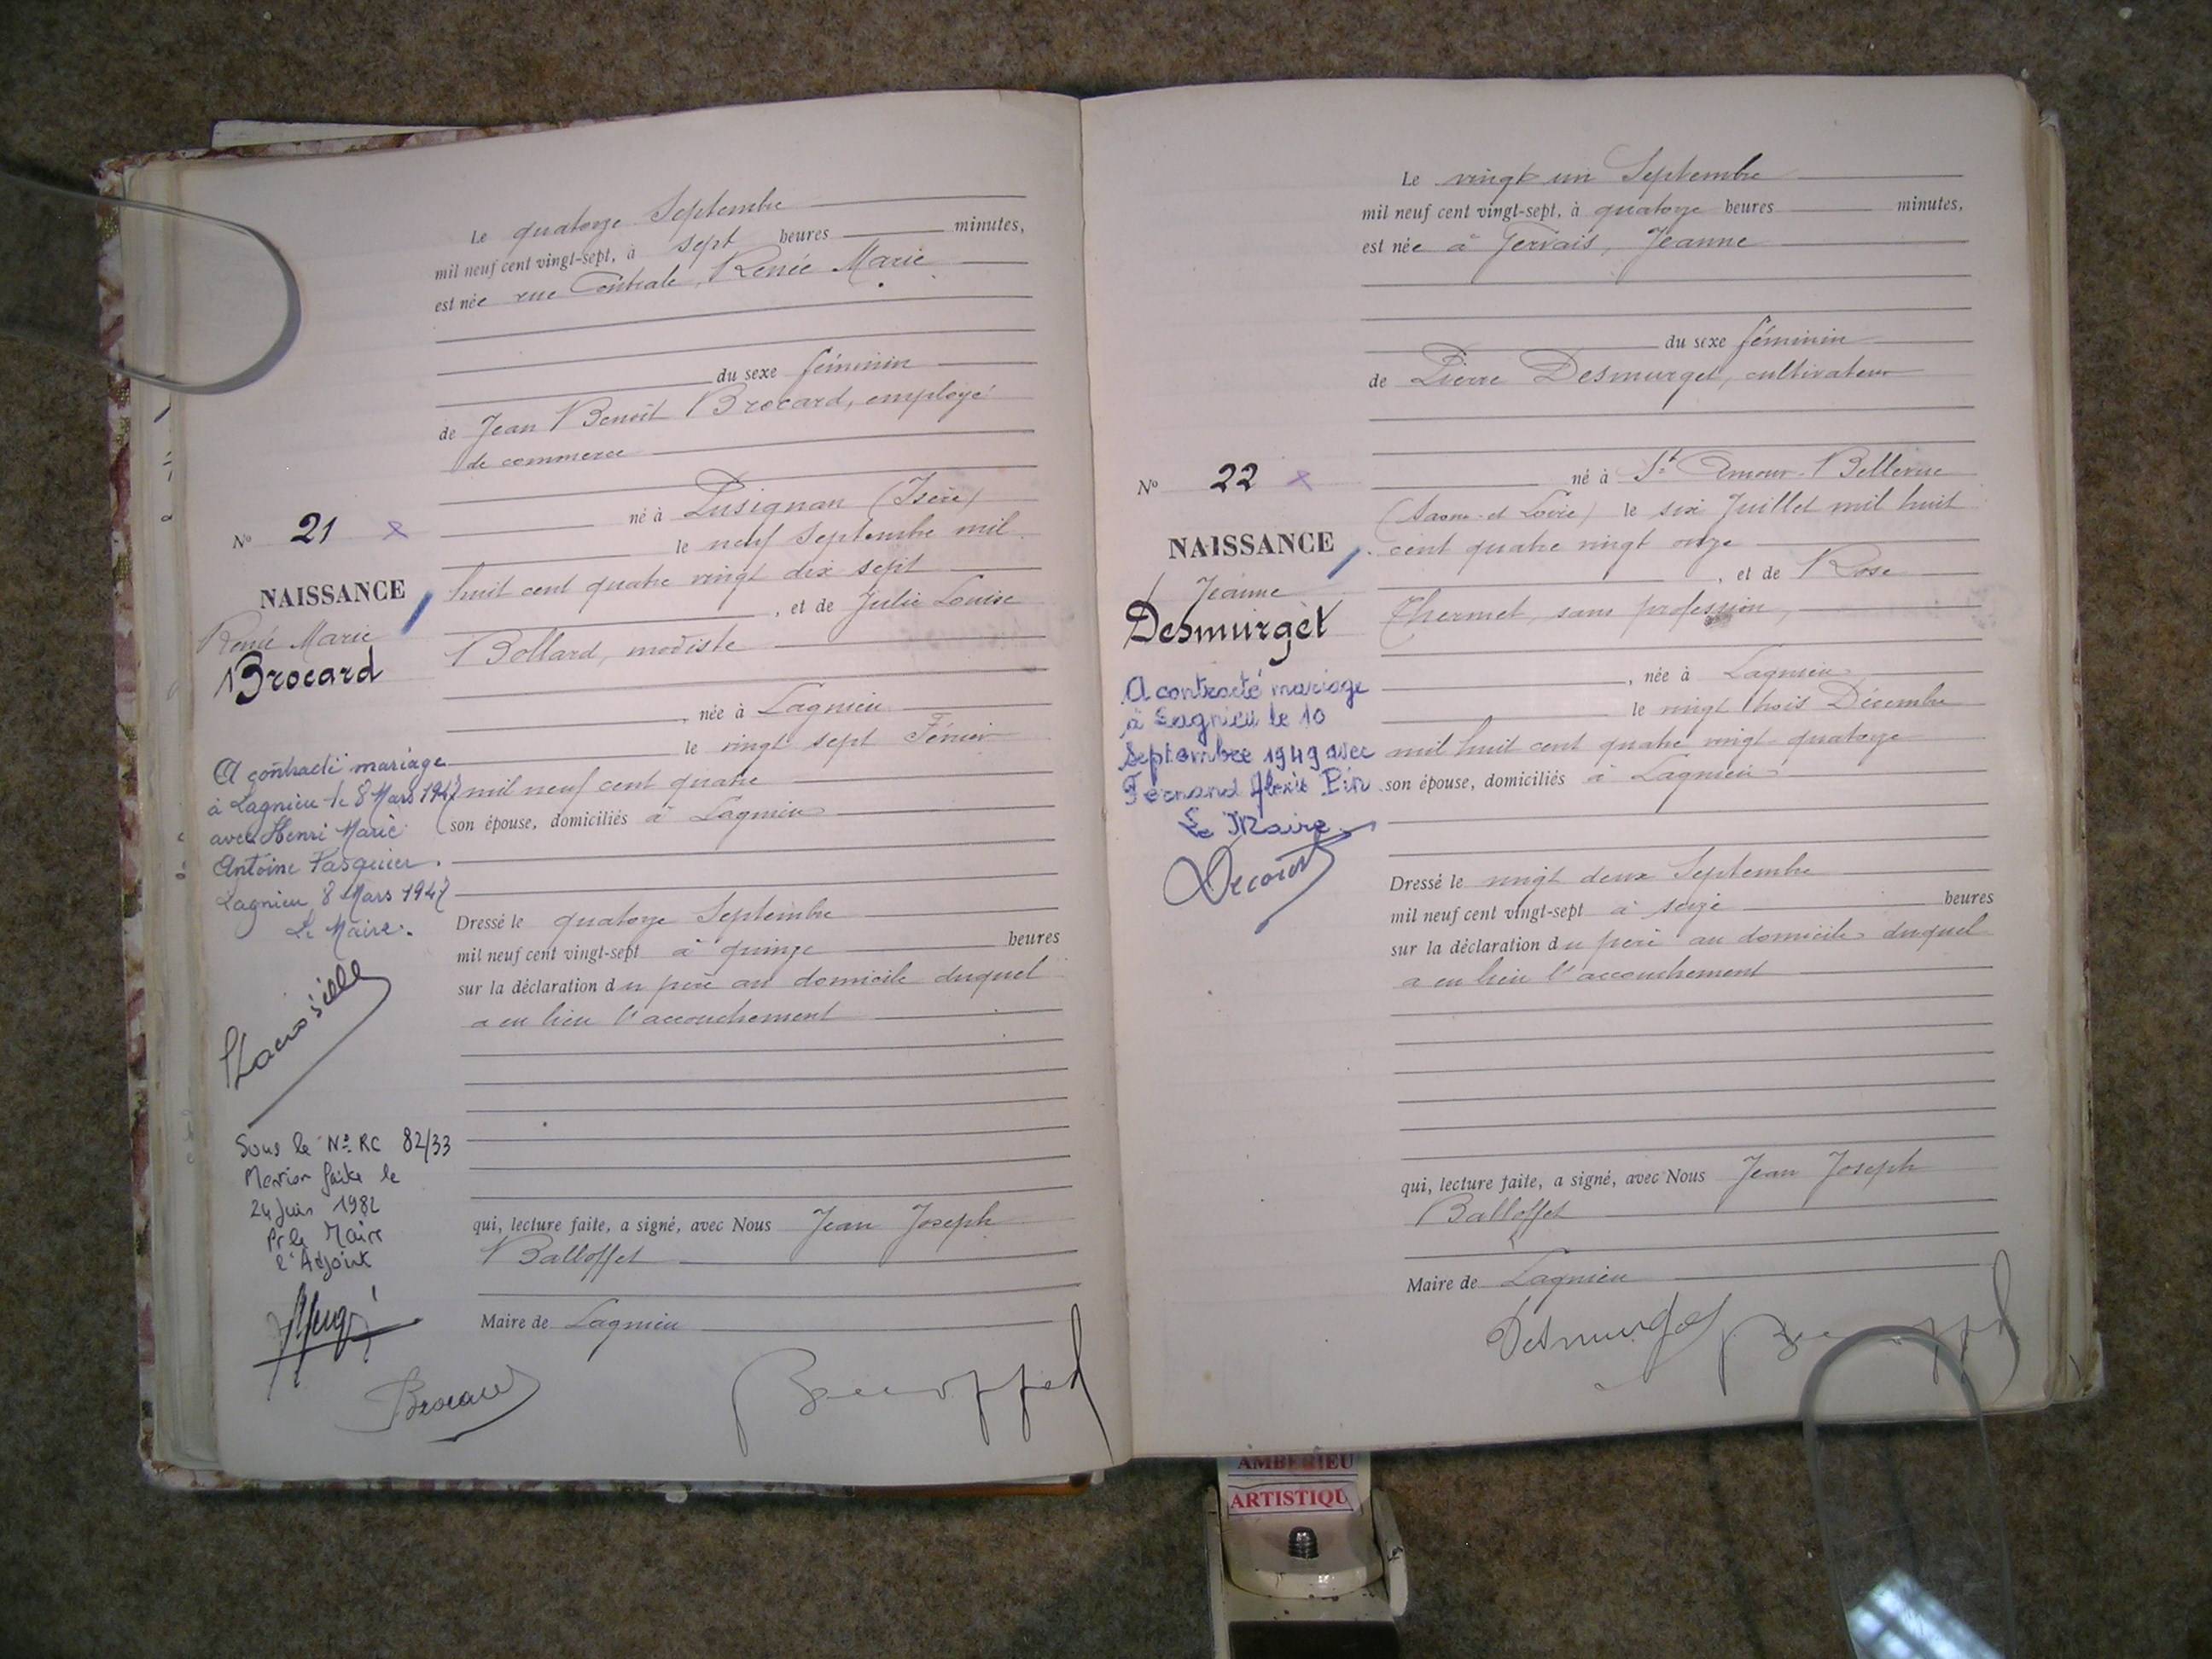 Le quatorze Septembre
mil neuf cent vingt-sept, à sept heures minutes,
est née rue Centrale, Renée Marie
du sexe féminin
de Jean Benoît Brocard, employé
de commerce
né à Pusignan (Isère)
le neuf Septembre mil
huit cent quatre vingt dix sept
, et de Julie Louise
Bollard, modiste
, née à Lagnieu
le vingt sept Février
mil neuf cent quatre
son épouse, domiciliés à Lagnieu
Dressé le quatorze Septembre
mil neuf cent vingt-sept à quinze heures
sur la déclaration du père au domicile duquel
a eu lieu l'accouchement
qui, lecture faite, a signé, avec Nous Jean Joseph
Balloffet
Maire de Lagnieu
Brocard
Nº 21
NAISSANCE
Renée Marie
Brocard
A contracté mariage
à Lagnieu le 8 Mars 1947
avec Henri Marie
Antoine Pasquier.
Lagnieu 8 Mars 1947
Le Maire.
Sous le Nº RC 82/33
Mention faite le
24 Juin 1982
Pr le Maire
l'Adjoint
Le vingt un Septembre
mil neuf cent vingt-sept, à quatorze heures minutes,
est née à Gervais, Jeanne
du sexe féminin
de Pierre Desmurget, cultivateur
né à St Amour-Bellevue
(Saone-et Loire) le six Juillet mil huit
cent quatre vingt onze
, et de Rose
Thermet, sans profession,
, née à Lagnieu
le vingt trois Décembre
mil huit cent quatre vingt-quatorze
son épouse, domiciliés à Lagnieu
Dressé le vingt deux Septembre
mil neuf cent vingt-sept à seize heures
sur la déclaration du père au domicile duquel
a eu lieu l'accouchement
qui, lecture faite, a signé, avec Nous Jean Joseph
Balloffet
Maire de Lagnieu
Desmurget
Nº 22
NAISSANCE
Jeanne
Desmurget
A contracté mariage
à Lagnieu le 10
Septembre 1949 avec
Fernand Alexis Pin
Le Maire
AMBERIEU
ARTISTIQU